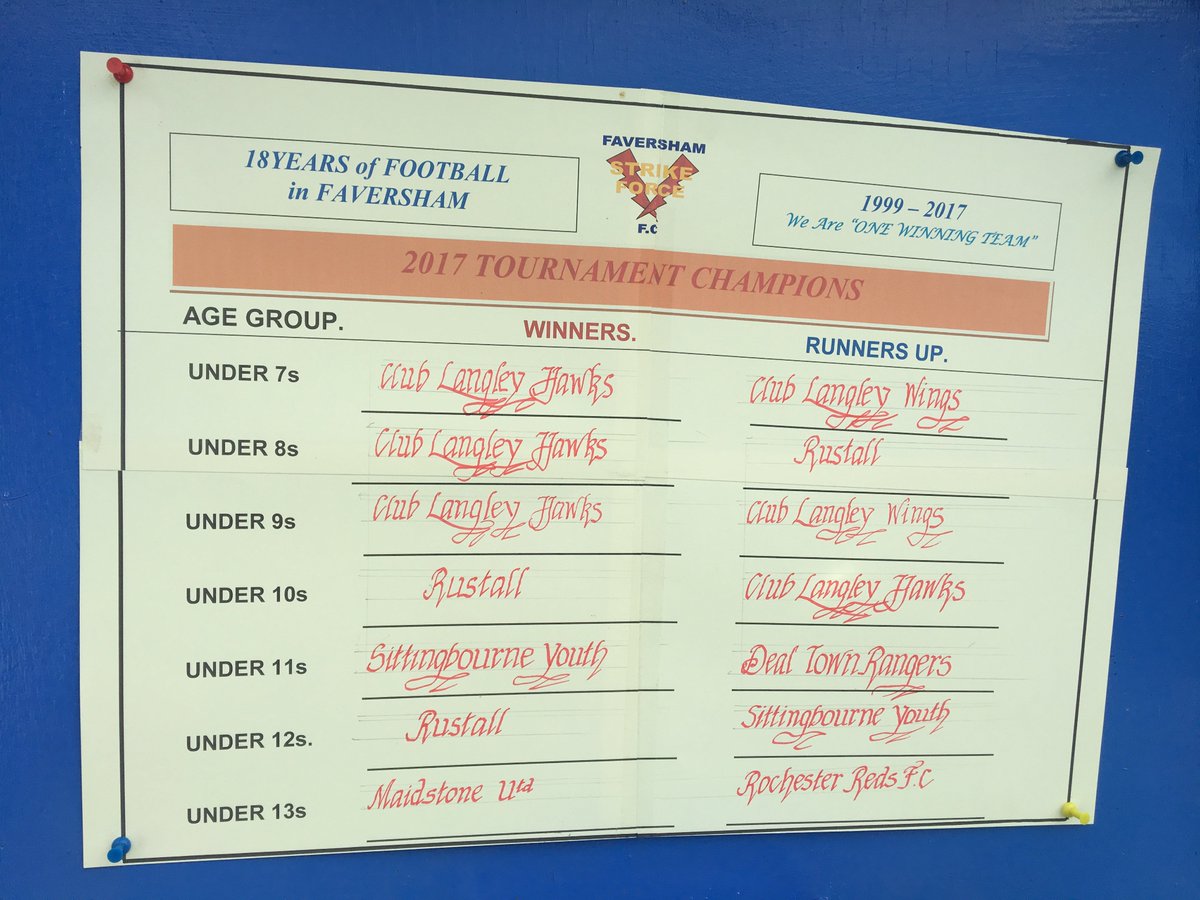 18YEARS of FOOTBALL
in FAVERSHAM
FAVERSHAM
STRIKE
FORCE
F.C
1999 – 2017
We Are "ONE WINNING TEAM"
2017 TOURNAMENT CHAMPIONS
AGE GROUP. WINNERS. RUNNERS UP.
UNDER 7s Club Langley Hawks Club Langley Wings
UNDER 8s Club Langley Hawks Rustall
UNDER 9s Club Langley Hawks Club Langley Wings
UNDER 10s Rustall Club Langley Hawks
UNDER 11s Sittingbourne Youth Deal Town Rangers
UNDER 12s. Rustall Sittingbourne Youth
UNDER 13s Maidstone Utd Rochester Reds F.C